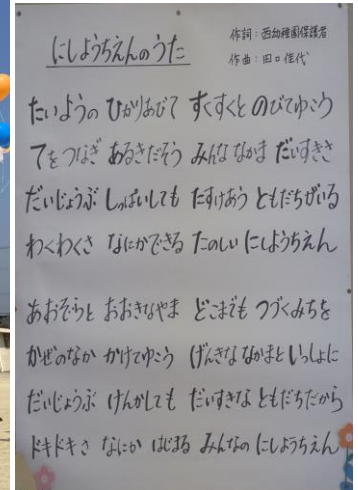 にしようちえんのうた
作詞：西幼稚園保護者
作曲：田口佳代
たいようの ひかりあびて すくすくと のびてゆこう
てをつなぎ あるきだそう みんな なかま だいすきさ
だいじょうぶ しっぱいしても たすけあう ともだちがいる
わくわくさ なにかできる たのしい にしようちえん
あおぞらと おおきなやま どこまでも つづくみちを
かぜのなか かけてゆこう げんきな なかまと いっしょに
だいじょうぶ けんかしても だいすきな ともだちだから
ドキドキさ なにか はじまる みんなの にしようちえん